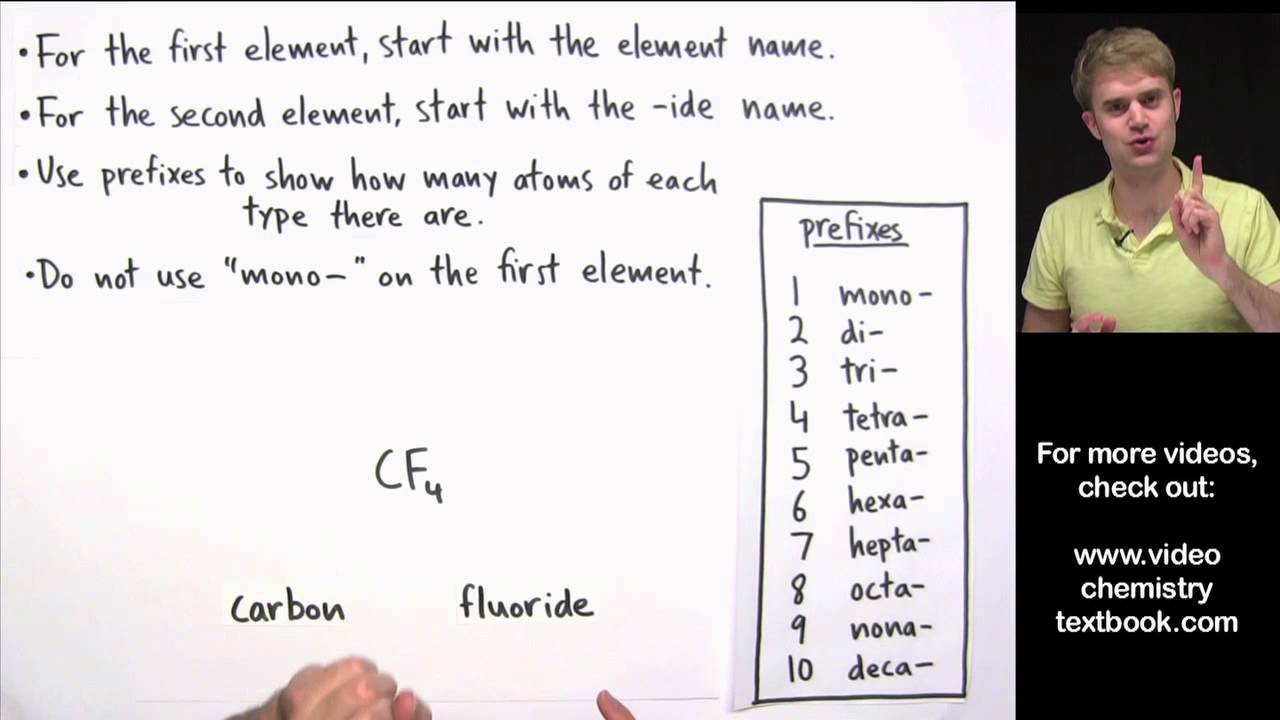 • For the first element, start with the element name.
• For the second element, start with the -ide name.
• Use prefixes to show how many atoms of each
type there are.
• Do not use "mono-" on the first element.
CF₄
carbon fluoride
prefixes
1 mono-
2 di-
3 tri-
4 tetra-
5 penta-
6 hexa-
7 hepta-
8 octa-
9 nona-
10 deca-
For more videos,
check out:
www.video
chemistry
textbook.com